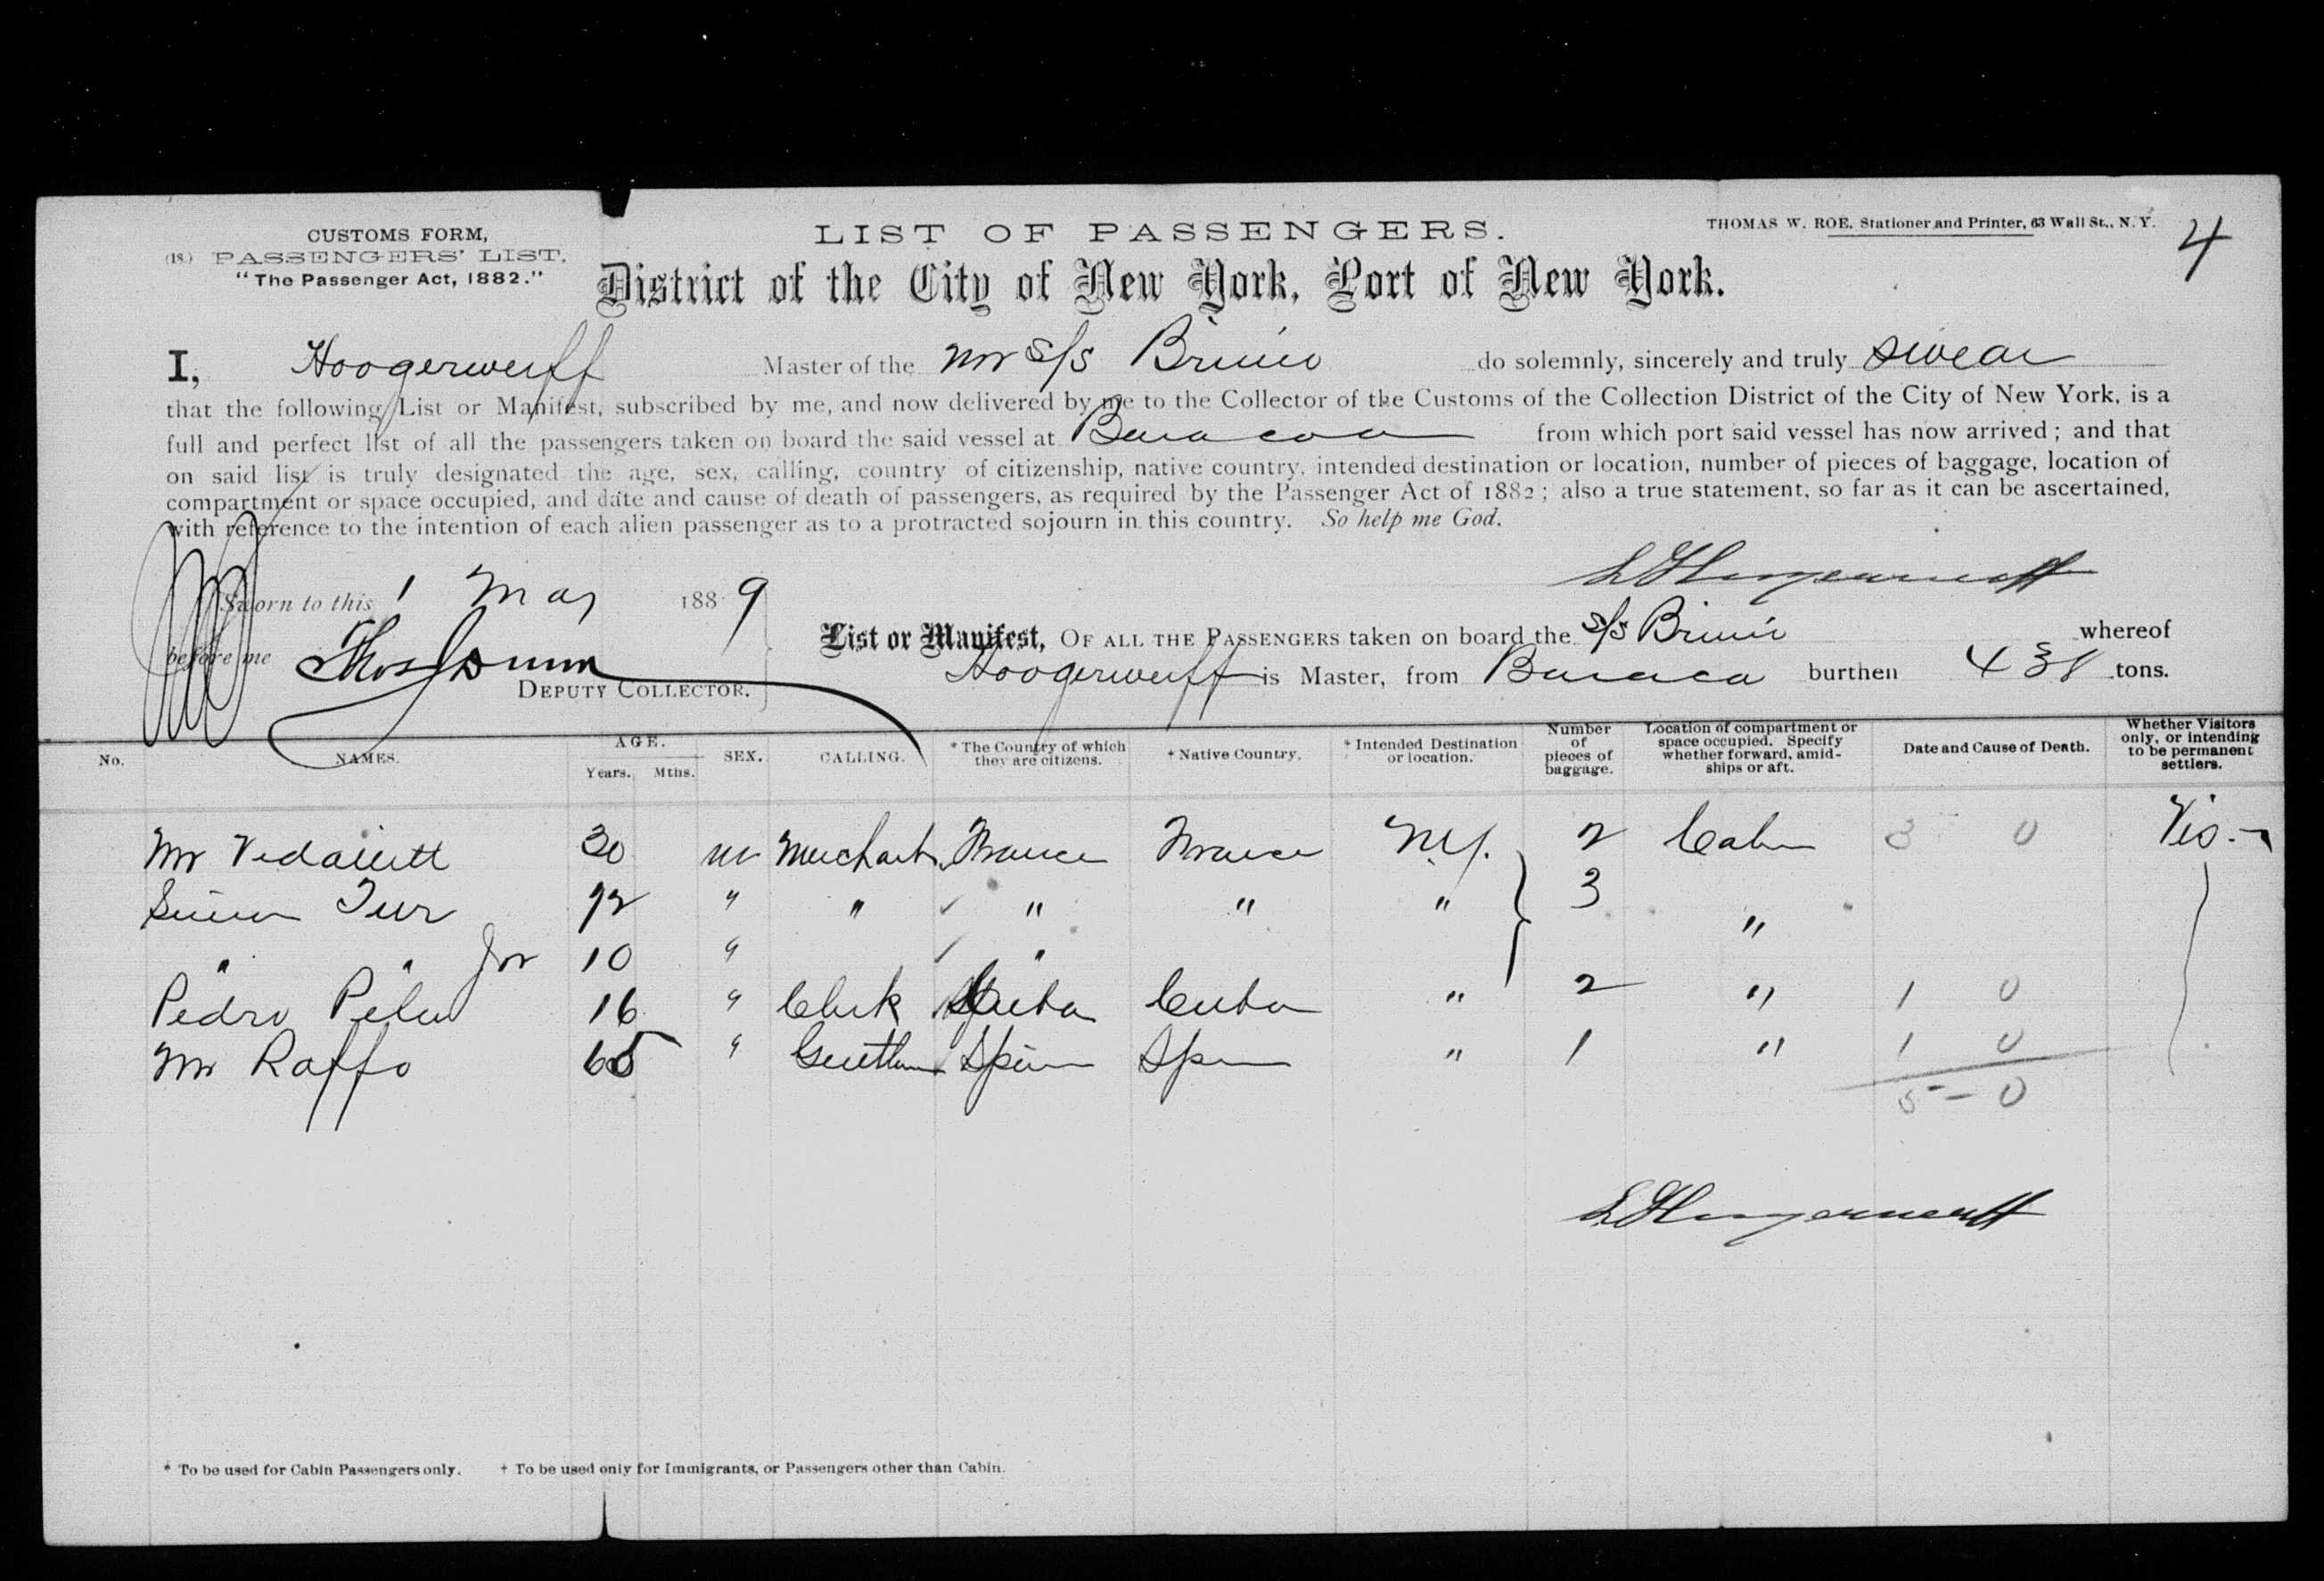 CUSTOMS FORM,
(18.) PASSENGERS' LIST.
"The Passenger Act, 1882."
LIST OF PASSENGERS.
THOMAS W. ROE, Stationer and Printer, 63 Wall St., N.Y.
4
District of the City of New York, Port of New York.
I, Hoogerwerff Master of the s/s do solemnly, sincerely and truly swear
that the following List or Manifest, subscribed by me, and now delivered by me to the Collector of the Customs of the Collection District of the City of New York, is a
full and perfect list of all the passengers taken on board the said vessel at Baracoa from which port said vessel has now arrived; and that
on said list is truly designated the age, sex, calling, country of citizenship, native country, intended destination or location, number of pieces of baggage, location of
compartment or space occupied, and date and cause of death of passengers, as required by the Passenger Act of 1882; also a true statement, so far as it can be ascertained,
with reference to the intention of each alien passenger as to a protracted sojourn in this country. So help me God.
Sworn to this 1 May 1889
before me
DEPUTY COLLECTOR.
List or Manifest, OF ALL THE PASSENGERS taken on board the s/s whereof
Hoogerwerff is Master, from burthen 438 tons.
No. NAMES. AGE. Years. Mths. SEX. CALLING. * The Country of which they are citizens. * Native Country. † Intended Destination or location. Number of pieces of baggage. Location of compartment or space occupied. Specify whether forward, amidships or aft. Date and Cause of Death. Whether Visitors only, or intending to be permanent settlers.
Mr 30 m Merchant France France N.Y. 2 Cabin 3 0 Vis.
" " " " " 3 "
" " Jnr 10 " "
Pedro 16 " Clerk Cuba Cuba " 2 " 1 0
Mr Raffo 65 " Spain Spain " 1 " 1 0
5 - 0
* To be used for Cabin Passengers only. † To be used only for Immigrants, or Passengers other than Cabin.